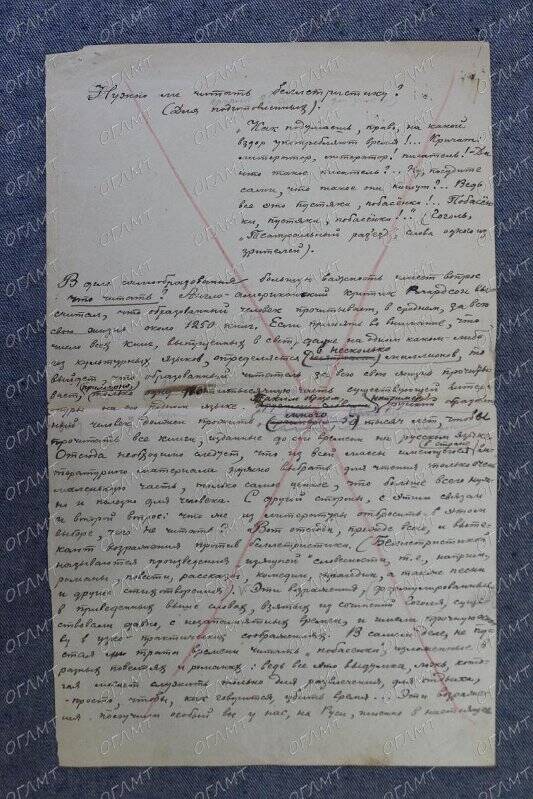 Нужно ли читать беллетристику?
(Для подготовленных).
"Как подумаешь, право, на какой
вздор употребляют время!... Кричат:
литератор, литератор! писатель! - Да
что такое писатель?... Ну, посудите
сами, что такое они пишут!... Ведь
все это пустяки, побасенки!... Побасен-
ки, пустяки, побасенки!.." (Гоголь,
"Театральный разъезд", слова одного из
зрителей).
В деле самообразования большую важность имеет вопрос
- что читать? Англо-американский критик Ричардсон вы-
считал, что образованный человек прочитывает, в среднем, за всю
свою жизнь около 1250 книг. Если принять во внимание, что
число всех книг, выпущенных в свет, даже на одном каком-либо
из культурных языков, определяется в несколько миллионов, то
выйдет, что образованный читатель за всю свою жизнь прочиты-
вает, только одну тысячную часть существующей литера-
туры на его родном языке. Таким образом, например, русский образован-
ный человек должен прожить много тысяч лет, чтобы
прочитать все книги, изданные до сего времени на русском языке.
Отсюда необходимо следует, что из всей массы имеющегося ли-
тературного материала нужно выбрать для чтения только очень
маленькую часть, только самое ценное, что больше всего нуж-
но и полезно для человека. С другой стороны, с этим связан
и второй вопрос: что же из литературы отбросить в этом
выборе, чего не читать? Вот отсюда, прежде всего, и выте-
кают возражения против беллетристики. (Беллетристикой
называются произведения изящной словесности, т.е., наприм.,
романы, повести, рассказы, комедии, трагедии, а также песни
и другие стихотворения). Эти возражения, формулированные
в приведенных выше словах, взятых из сочинений Гоголя, суще-
ствовали давно, с незапамятных времен, и имели прочную осно-
ву в узко-практических соображениях. В самом деле, не
ли трата времени читать "побасенки", изложенные в
разных повестях и романах: ведь все это выдумка, ложь, кото-
рая может служить только для развлечения, для отдыха,
- просто, чтобы, как говорится, убить время... Эти возраже-
ния получили особый вес у нас, на Руси, именно в настоящее